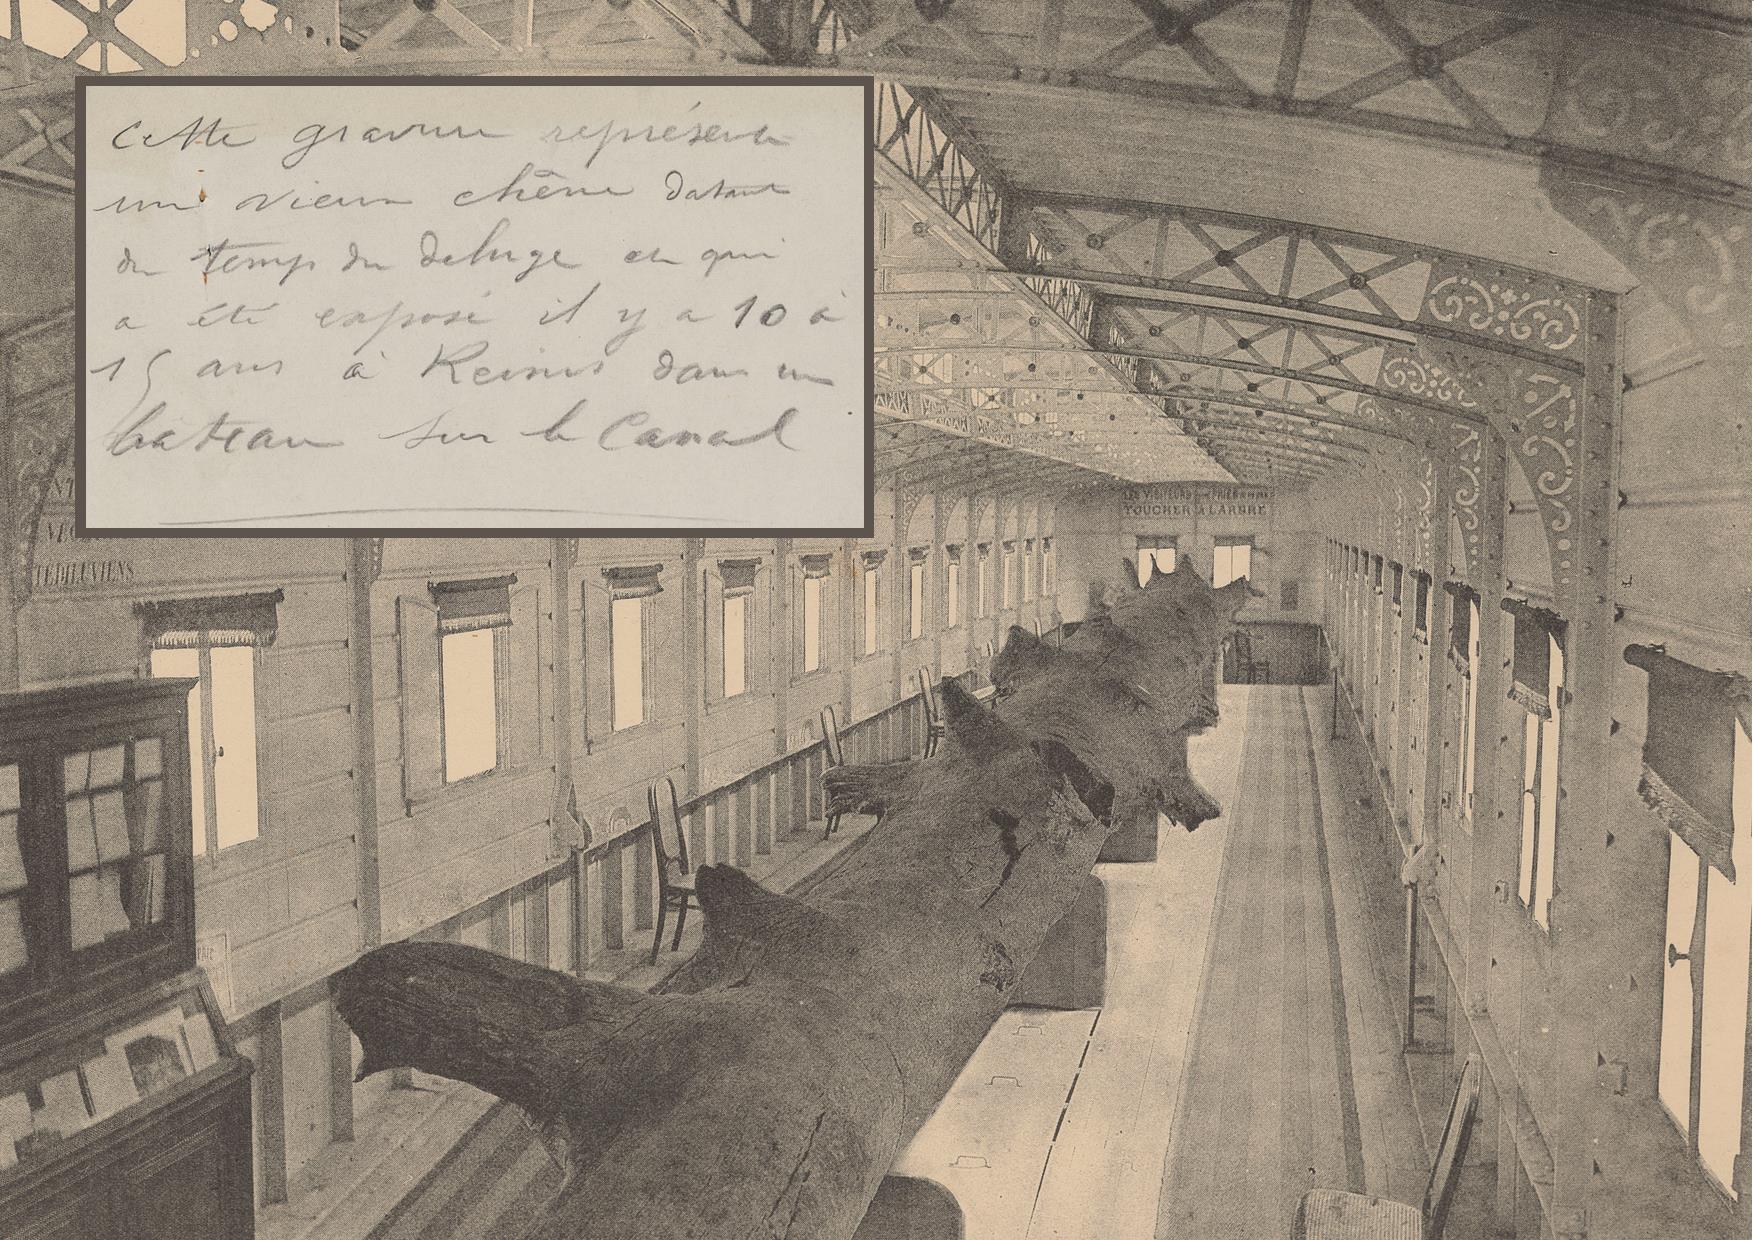 Cette gravure représente
un vieux chêne datant
du temps du deluge et qui
a été exposé il y a 10 à
15 ans à Reims dans un
bateau sur le Canal
LES VISITEURS SONT PRIÉS DE NE PAS
TOUCHER à L'ARBRE
TEDILUVIENS